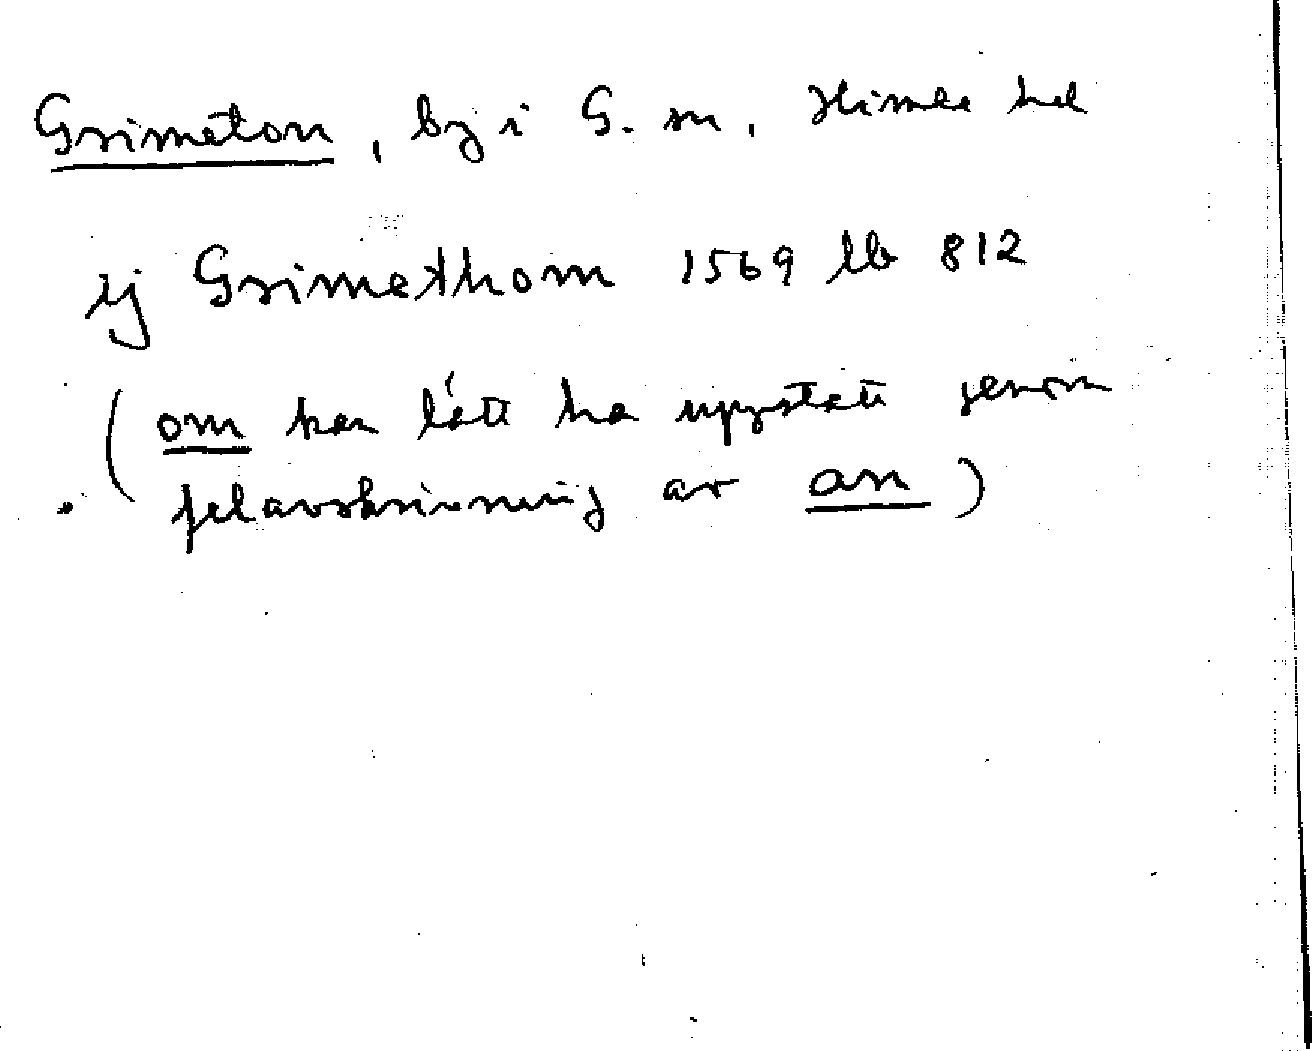 Grimeton, by i G. sn, Himle hd
ij Grimethom 1569 lb 812
(om kan lätt ha uppstått genom
felavskrivning av an)